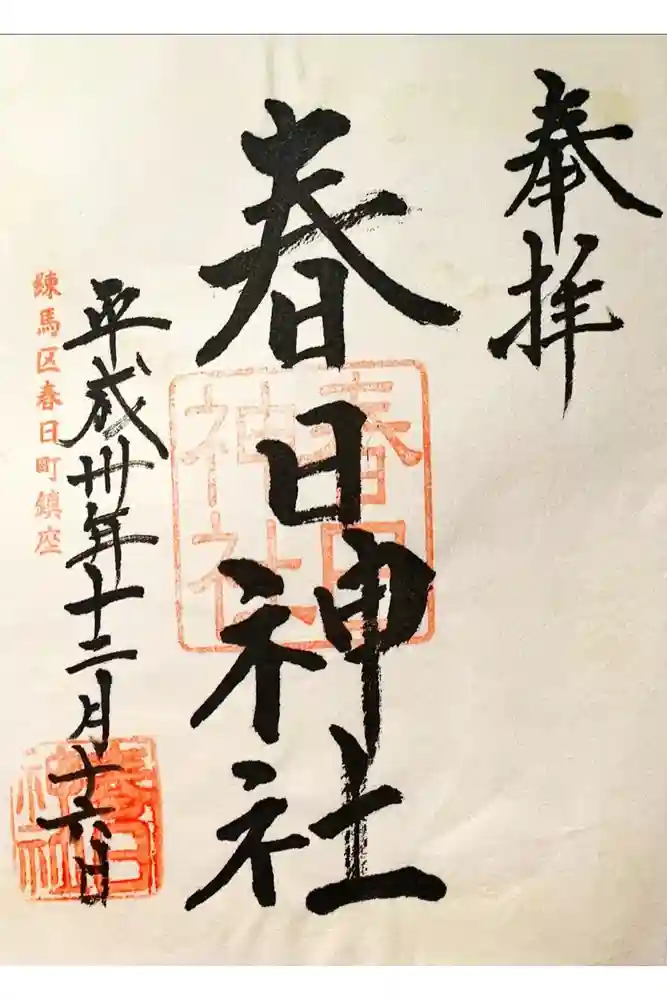 奉拝
春日神社
春日神社
平成卅年十二月十六日
練馬区春日町鎮座
春日神社